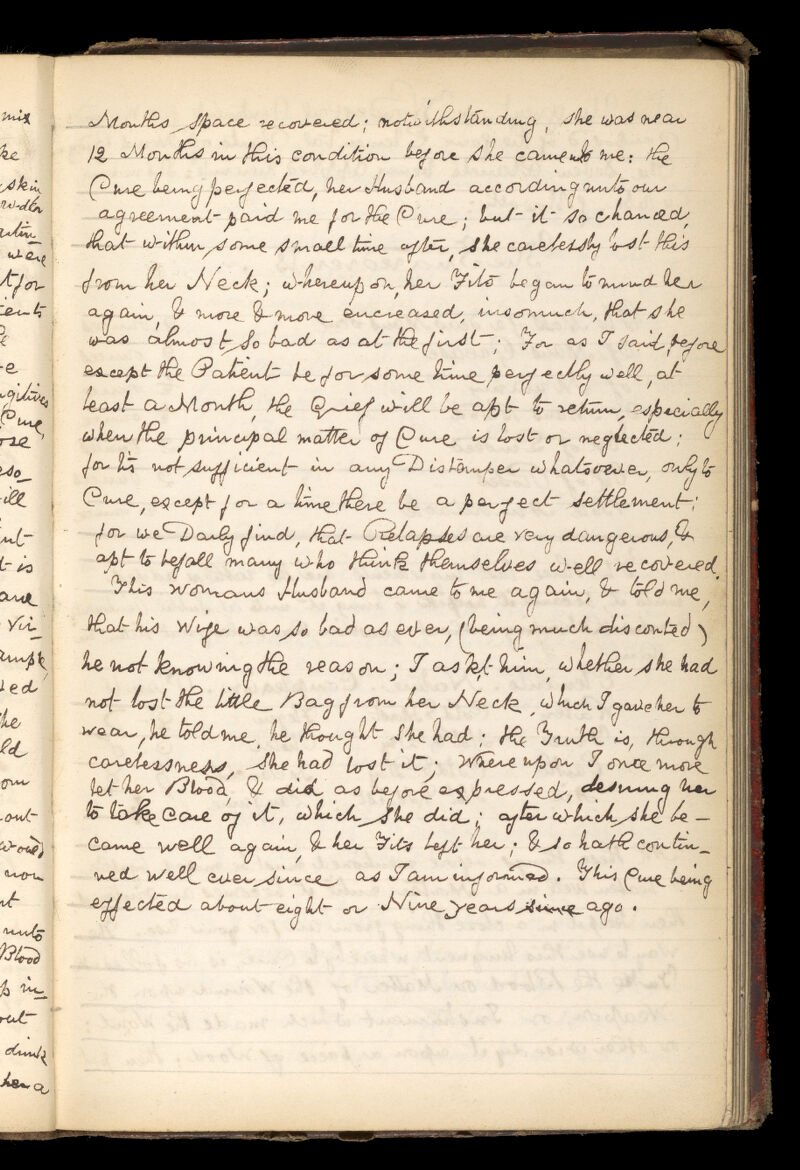 Months space recovered; notwithstanding, she was near
12 Months in this condition before she came to me: the
Cure being perfected, her Husband according unto our
agreement paid me for the Cure; but it so chanced,
that within some small time after, she carelessly lost this
from her Neck; whereupon, her Fits began to mind her
again, & more & more encreased, insomuch, that she
was almost so bad as at the first; For as I said, before
except the Patient be for some time perfectly well, at
least a Month, the Grief will be apt to return, especially
when the principal matter of Cure is lost or neglected;
for tis not sufficient in any Distemper whatsoever, only to
Cure, except for a time there be a perfect settlement;
for we Daily find, that Relapses are very dangerous, &
apt to befall many who think themselves well recovered.
This womans Husband came to me again, & told me,
that his Wife was so bad as ever, (being much disconted)
he not knowing the reason; I askt him, whether she had
not lost the little Bag from her Neck, which I gave her to
wear, he told me, he thought she had; the Truth is, through
carelessness, she had lost it; Whereupon I once more
let her Blood, & did as before expressed, desiring her
to take care of it, which she did; after which, she be-
came well again, & her Fits left her; & so hath contin-
ued well ever since as I am informed. This Cure being
effected about eight or Nine years since ago.
mix
ke
skin
were
t for
Cure,
ill
t is
are
Vir-
ed
he
ld
out
unto
Blood
in-
out
drink
her a